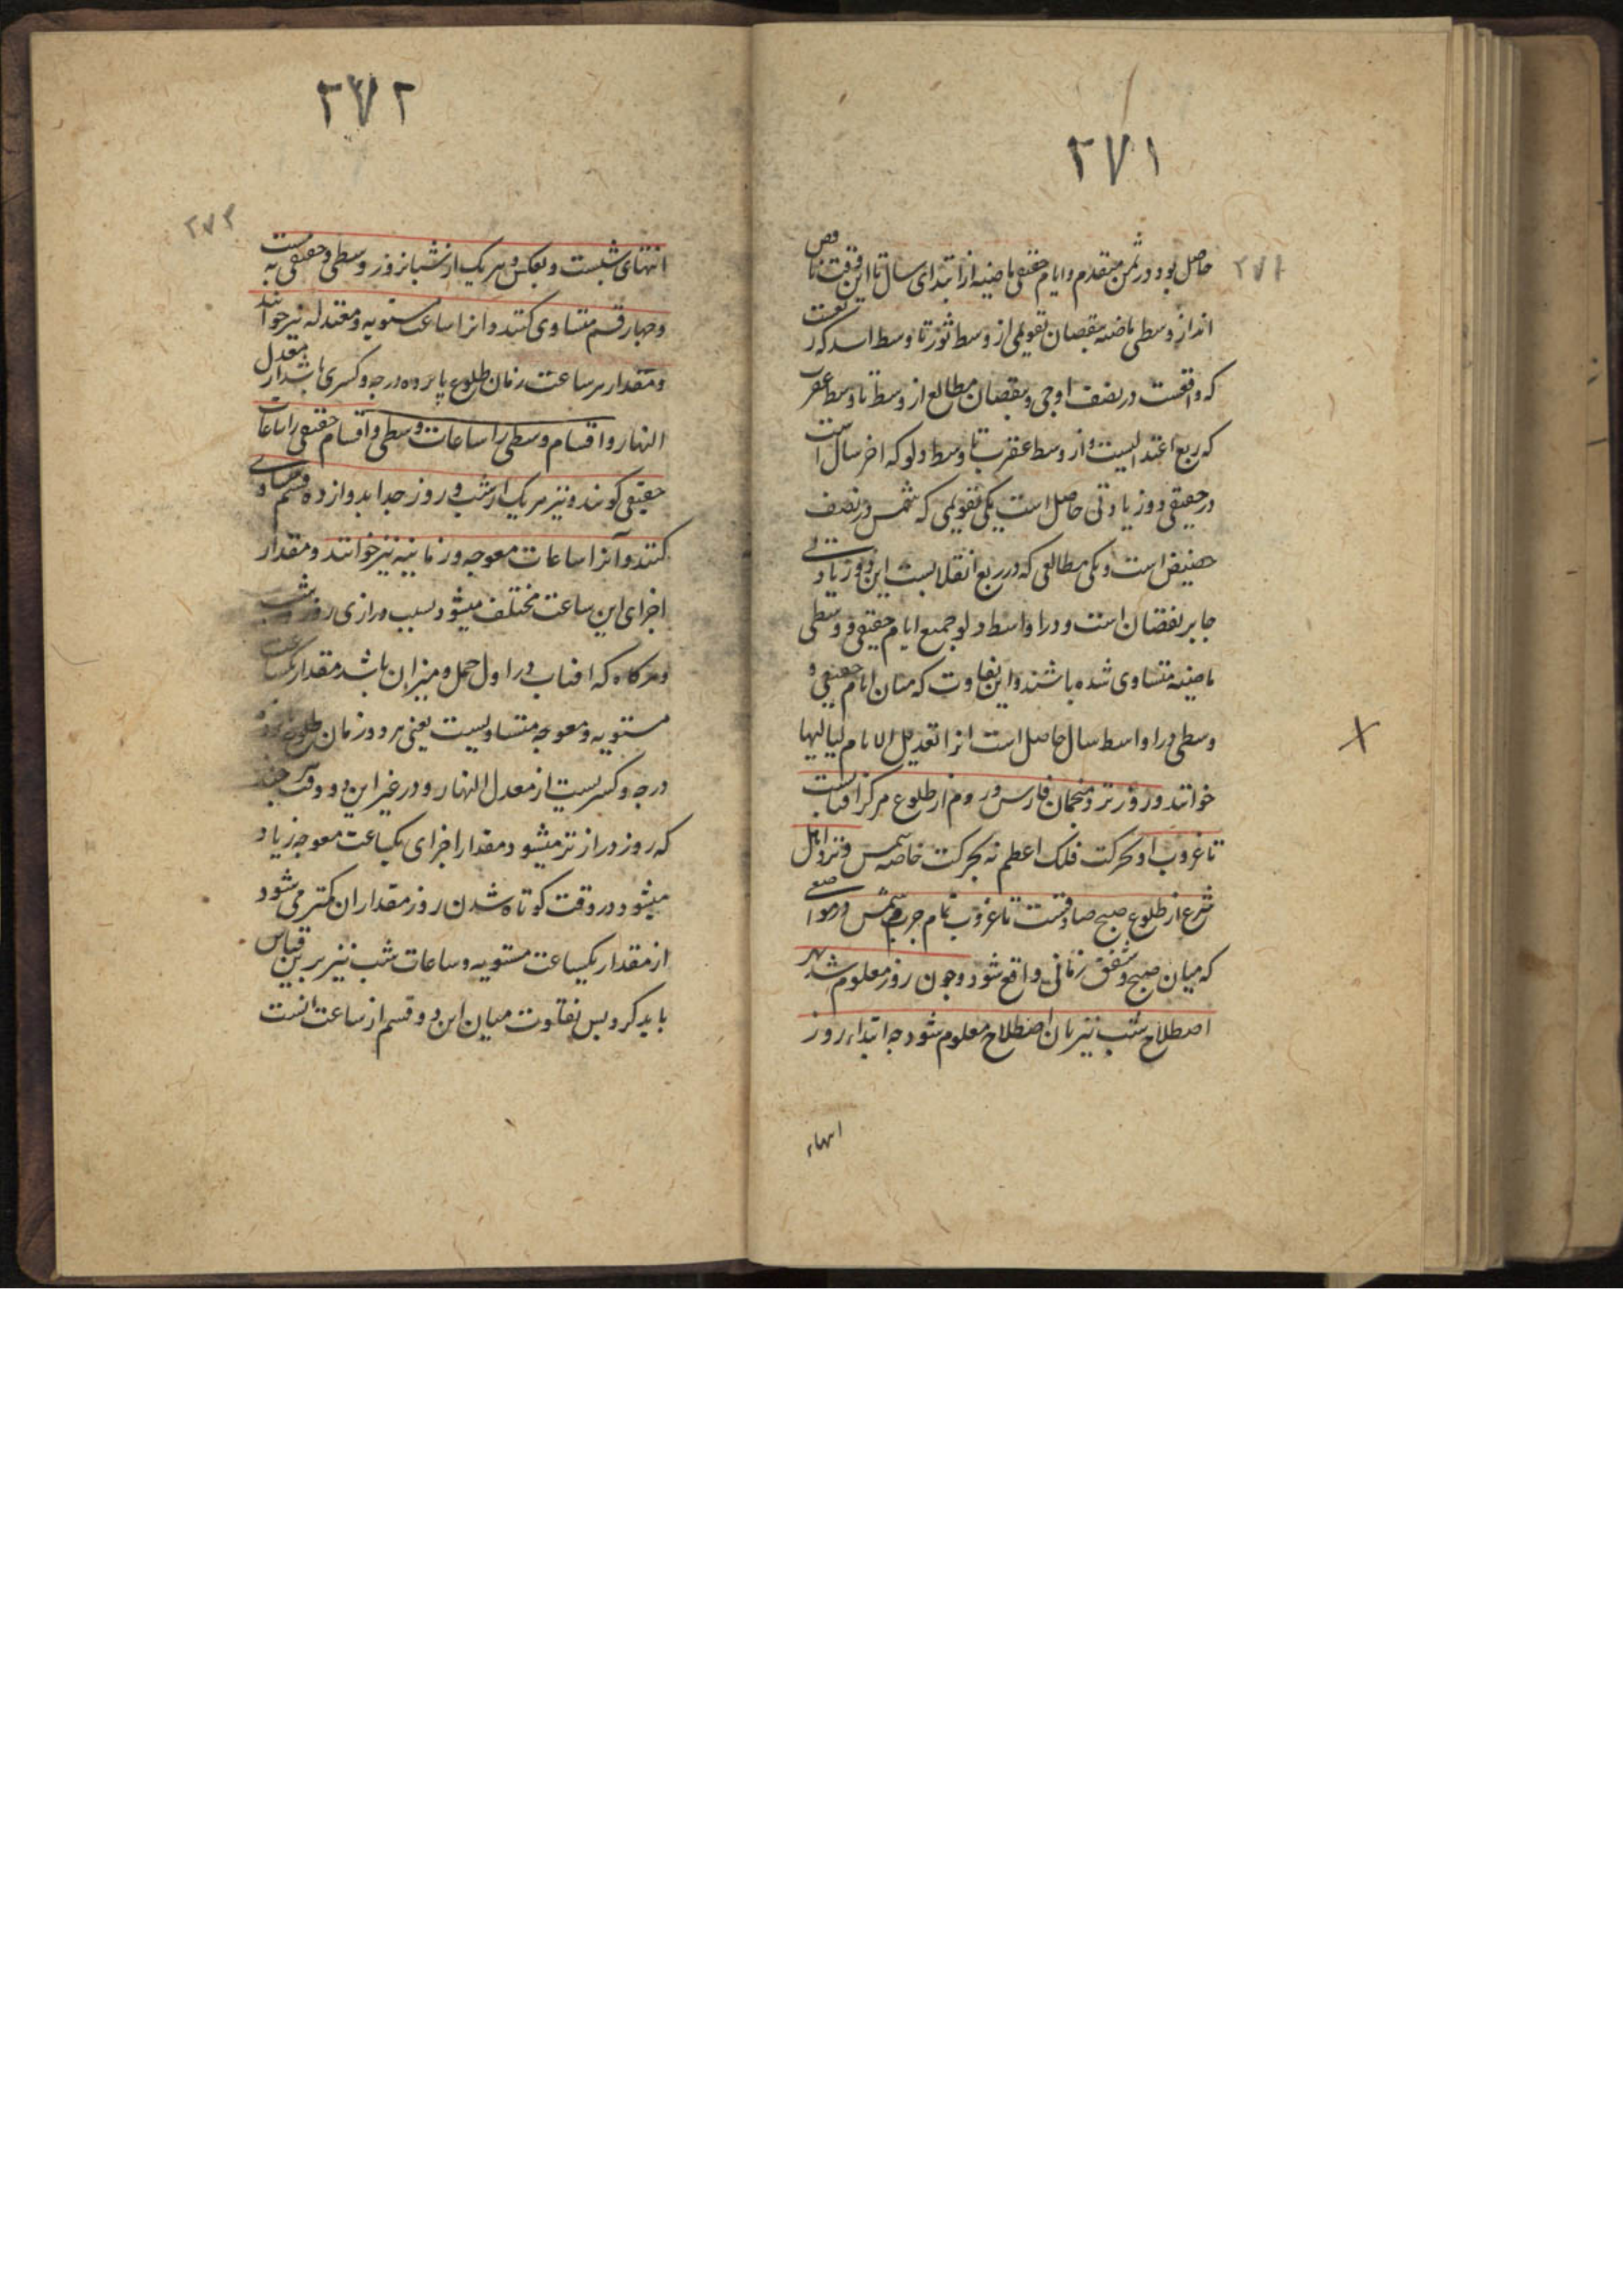 ۲۷۱
۲۷۱
حاصل بود در ثمن متقدم و ایام حقیقی ماضیه از ابتدای سال تا این وقت ناقص
اند از وسطی ماضیه بنقصان تقویمی از وسط ثور تا وسط اسد که
که واقعست در نصف اوجی و بنقصان مطالع از وسط تا وسط عقرب
که ربع اعتدالیست و از وسط عقرب تا وسط دلو که اخر سال است
در حقیقی دو زیادتی حاصل است یکی تقویمی که شمس در نصف
حضیض است و یکی مطالعی که در ربع انقلابیست این دو زیادتی
جابر نقصان است و در اواسط دلو جمیع ایام حقیقی و وسطی
ماضیه متساوی شده باشند و این تفاوت که میان ایام حقیقی و
وسطی در اواسط سال حاصل است انرا تعدیل الایام بلیالیها
خوانند و روز نزد منجمان فارس و روم از طلوع مرکز افتابست
تا غروب او بحرکت فلک اعظم نه بحرکت خاصه شمس و نزد اهل
شرع از طلوع صبح صادقست تا غروب تمام جرم شمس در مواضعی
که میان صبح و شفق زمانی واقع شود و چون روز معلوم شد بهر
اصطلاح شب نیز بان اصطلاح معلوم شود چه ابتداء روز
انتهاء
۲۷۲
۲۷۲
انتهای شبست و بعکس و هر یک از شبانروز وسطی و حقیقی به بیست
و چهار قسم متساوی کنند و انرا ساعت مستویه و معتدله نیز خوانند
و مقدار هر ساعت زمان طلوع پانزده درجه و کسری باشد از معدل
النهار و اقسام وسطی را ساعات وسطی و اقسام حقیقی را ساعات
حقیقی گویند و نیز هر یک از شب و روز جدا بدوازده قسم متساوی
کنند و آنرا ساعات معوجه و زمانیه نیز خوانند و مقدار
اجزای این ساعت مختلف میشود بسبب درازی روز و شب
و هرگاه که افتاب در اول حمل و میزان باشد مقدار یکساعت
مستویه و معوجه متساویست یعنی هر دو زمان طلوع پانزده
درجه و کسریست از معدل النهار و در غیر این دو وقت چند
که روز درازتر میشود مقدار اجزای یکساعت معوجه زیاد
میشود و در وقت کوتاه شدن روز مقدار ان کمتر می شود
از مقدار یکساعت مستویه و ساعات شب نیز برین قیاس
باید کرد پس تفاوت میان این دو قسم از ساعت انست